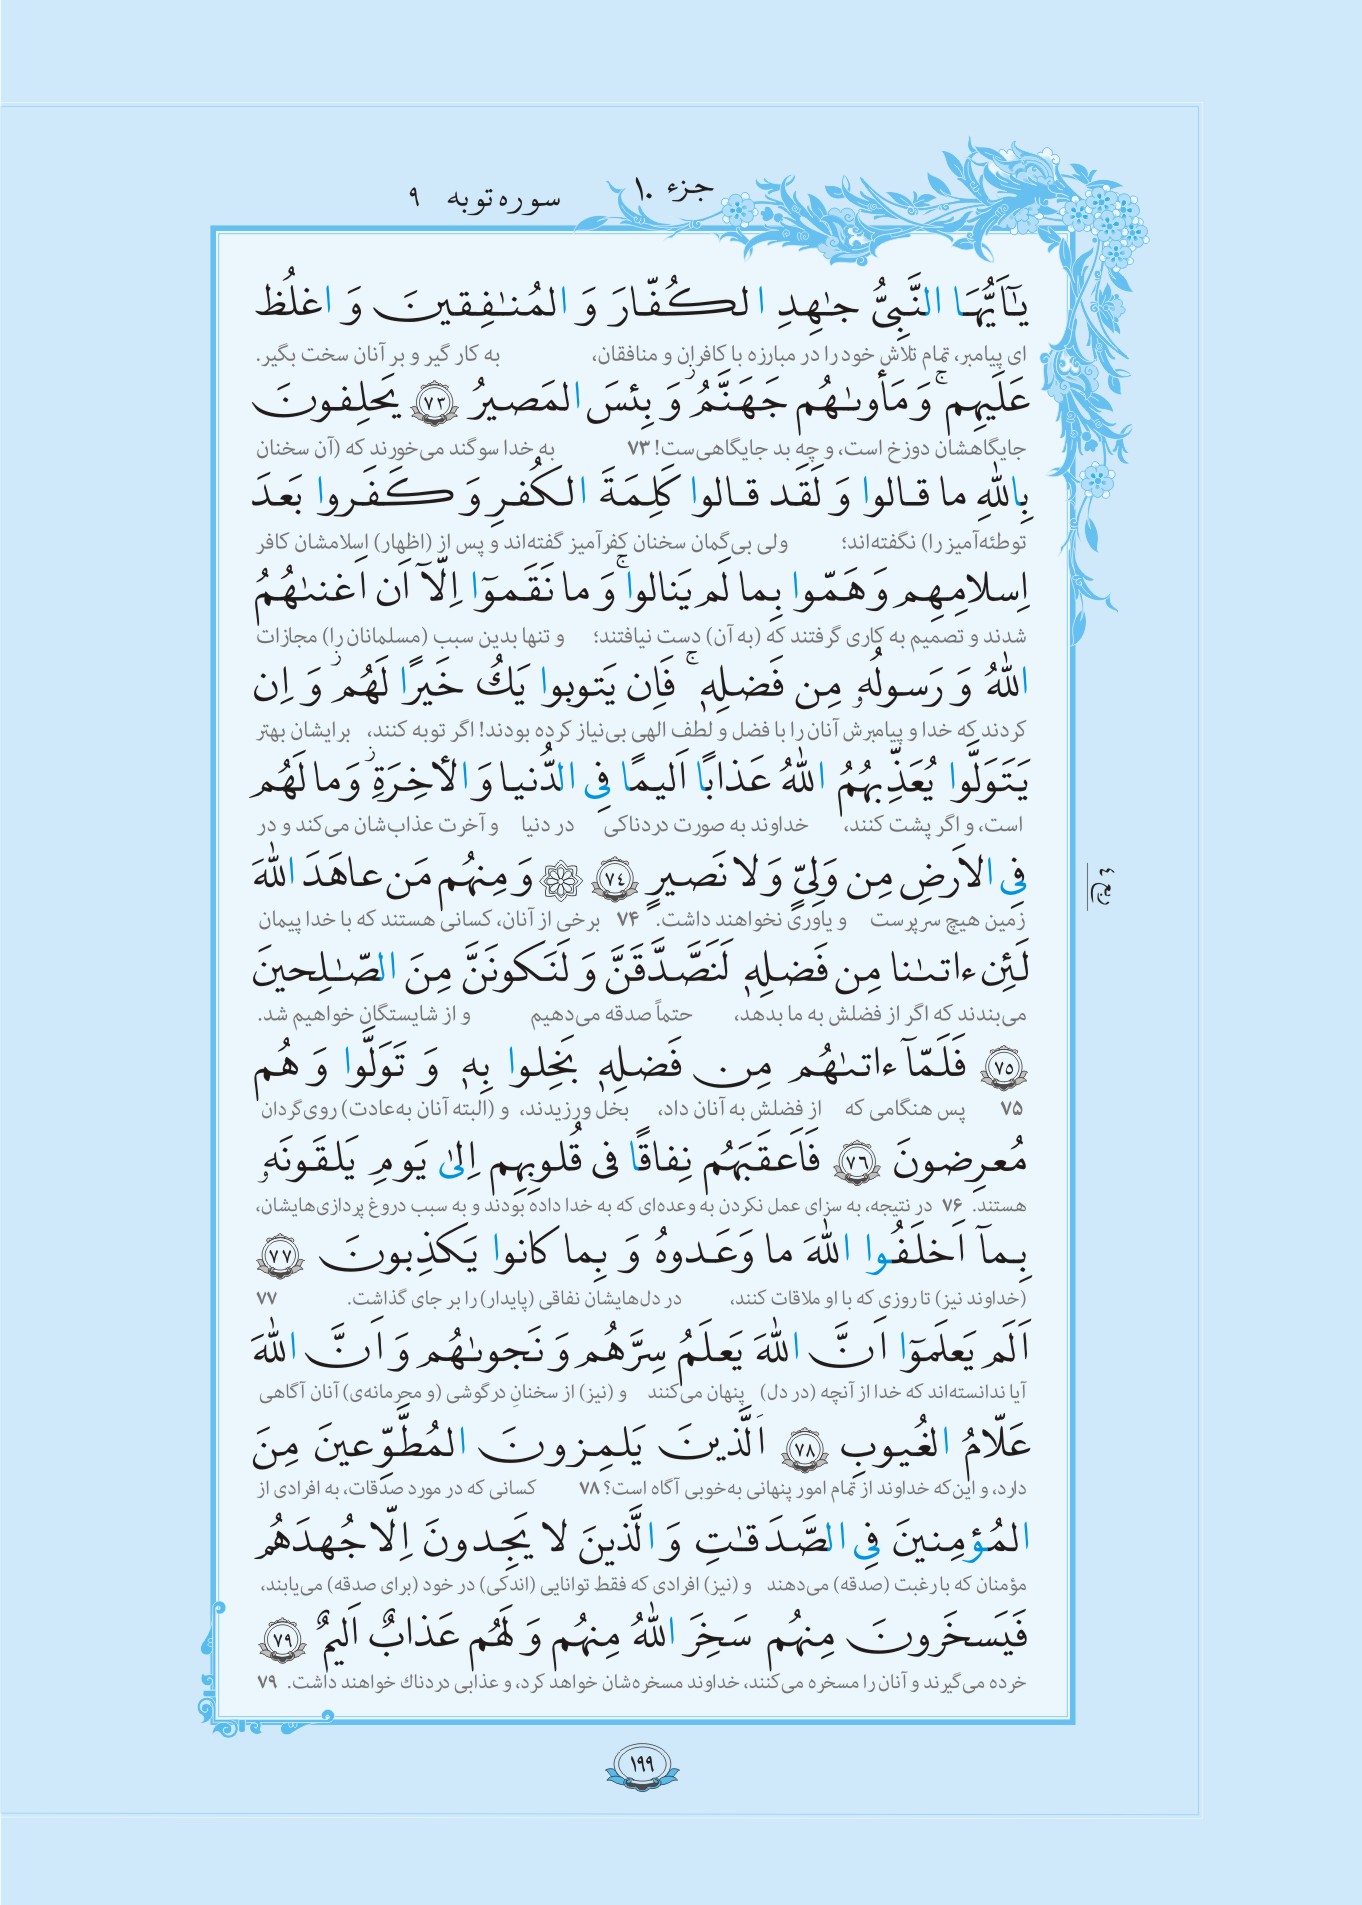 جزء ۱۰
سوره توبه ۹
يـٰٓاَيُّهَا النَّبِىُّ جـٰهِدِ الكُفّارَ وَ المُنـٰفِقينَ وَ اغلُظ
ای پیامبر، تمام تلاش خود را در مبارزه با کافران و منافقان، به کار گیر و بر آنان سخت بگیر.
عَلَيهِم ۚ وَ مَأوىـٰهُم جَهَنَّمُ وَ بِئسَ المَصيرُ ﴿٧٣﴾ يَحلِفونَ
جایگاهشان دوزخ است، و چه بد جایگاهی‌ست! ۷۳ به خدا سوگند می‌خورند که (آن سخنان
بِاللّٰهِ ما قالوا وَ لَقَد قالوا كَلِمَةَ الكُفرِ وَ كَفَروا بَعدَ
توطئه‌آمیز را) نگفته‌اند؛ ولی بی‌گمان سخنان کفرآمیز گفته‌اند و پس از (اظهار) اسلامشان کافر
اِسلامِهِم وَ هَمّوا بِما لَم يَنالوا ۚ وَ ما نَقَموٓا اِلّآ اَن اَغنىـٰهُمُ
شدند و تصمیم به کاری گرفتند که (به آن) دست نیافتند؛ و تنها بدین سبب (مسلمانان را) مجازات
اللّٰهُ وَ رَسولُهۥ مِن فَضلِهٖ ۚ فَاِن يَتوبوا يَكُ خَيرًا لَهُم وَ اِن
کردند که خدا و پیامبرش آنان را با فضل و لطف الهی بی‌نیاز کرده بودند! اگر توبه کنند، برایشان بهتر
يَتَوَلَّوا يُعَذِّبهُمُ اللّٰهُ عَذابًا اَليمًا فِى الدُّنيا وَ الأخِرَةِ وَ ما لَهُم
است، و اگر پشت کنند، خداوند به صورت دردناکی در دنیا و آخرت عذاب‌شان می‌کند و در
فِى الاَرضِ مِن وَلِىٍّ وَ لا نَصيرٍ ﴿٧٤﴾ ۞ وَ مِنهُم مَن عاهَدَ اللّٰهَ
ربع ٤
زمین هیچ سرپرست و یاوری نخواهند داشت. ۷۴ برخی از آنان، کسانی هستند که با خدا پیمان
لَئِن ءاتىـٰنا مِن فَضلِهٖ لَنَصَّدَّقَنَّ وَ لَنَكونَنَّ مِنَ الصّـٰلِحينَ
می‌بندند که اگر از فضلش به ما بدهد، حتماً صدقه می‌دهیم و از شایستگان خواهیم شد.
﴿٧٥﴾ فَلَمّآ ءاتىـٰهُم مِن فَضلِهٖ بَخِلوا بِهٖ وَ تَوَلَّوا وَ هُم
۷۵ پس هنگامی که از فضلش به آنان داد، بخل ورزیدند، و (البته آنان به‌عادت) روی‌گردان
مُعرِضونَ ﴿٧٦﴾ فَاَعقَبَهُم نِفاقًا فى قُلوبِهِم اِلىٰ يَومِ يَلقَونَهۥ
هستند. ۷۶ در نتیجه، به سزای عمل نکردن به وعده‌ای که به خدا داده بودند و به سبب دروغ پردازی‌هایشان،
بِمآ اَخلَفُوا اللّٰهَ ما وَعَدوهُ وَ بِما كانوا يَكذِبونَ ﴿٧٧﴾
(خداوند نیز) تا روزی که با او ملاقات کنند، در دل‌هایشان نفاقی (پایدار) را بر جای گذاشت. ۷۷
اَلَم يَعلَموٓا اَنَّ اللّٰهَ يَعلَمُ سِرَّهُم وَ نَجوىـٰهُم وَ اَنَّ اللّٰهَ
آیا ندانسته‌اند که خدا از آنچه (در دل) پنهان می‌کنند و (نیز) از سخنانِ درگوشی (و محرمانه‌ی) آنان آگاهی
عَلّامُ الغُيوبِ ﴿٧٨﴾ اَلَّذينَ يَلمِزونَ المُطَّوِّعينَ مِنَ
دارد، و این‌که خداوند از تمام امور پنهانی به‌خوبی آگاه است؟ ۷۸ کسانی که در مورد صدقات، به افرادی از
المُؤمِنينَ فِى الصَّدَقـٰتِ وَ الَّذينَ لا يَجِدونَ اِلّا جُهدَهُم
مؤمنان که با رغبت (صدقه) می‌دهند و (نیز) افرادی که فقط توانایی (اندکی) در خود (برای صدقه) می‌یابند،
فَيَسخَرونَ مِنهُم سَخِرَ اللّٰهُ مِنهُم وَ لَهُم عَذابٌ اَليمٌ ﴿٧٩﴾
خرده می‌گیرند و آنان را مسخره می‌کنند، خداوند مسخره‌شان خواهد کرد، و عذابی دردناك خواهند داشت. ۷۹
۱۹۹